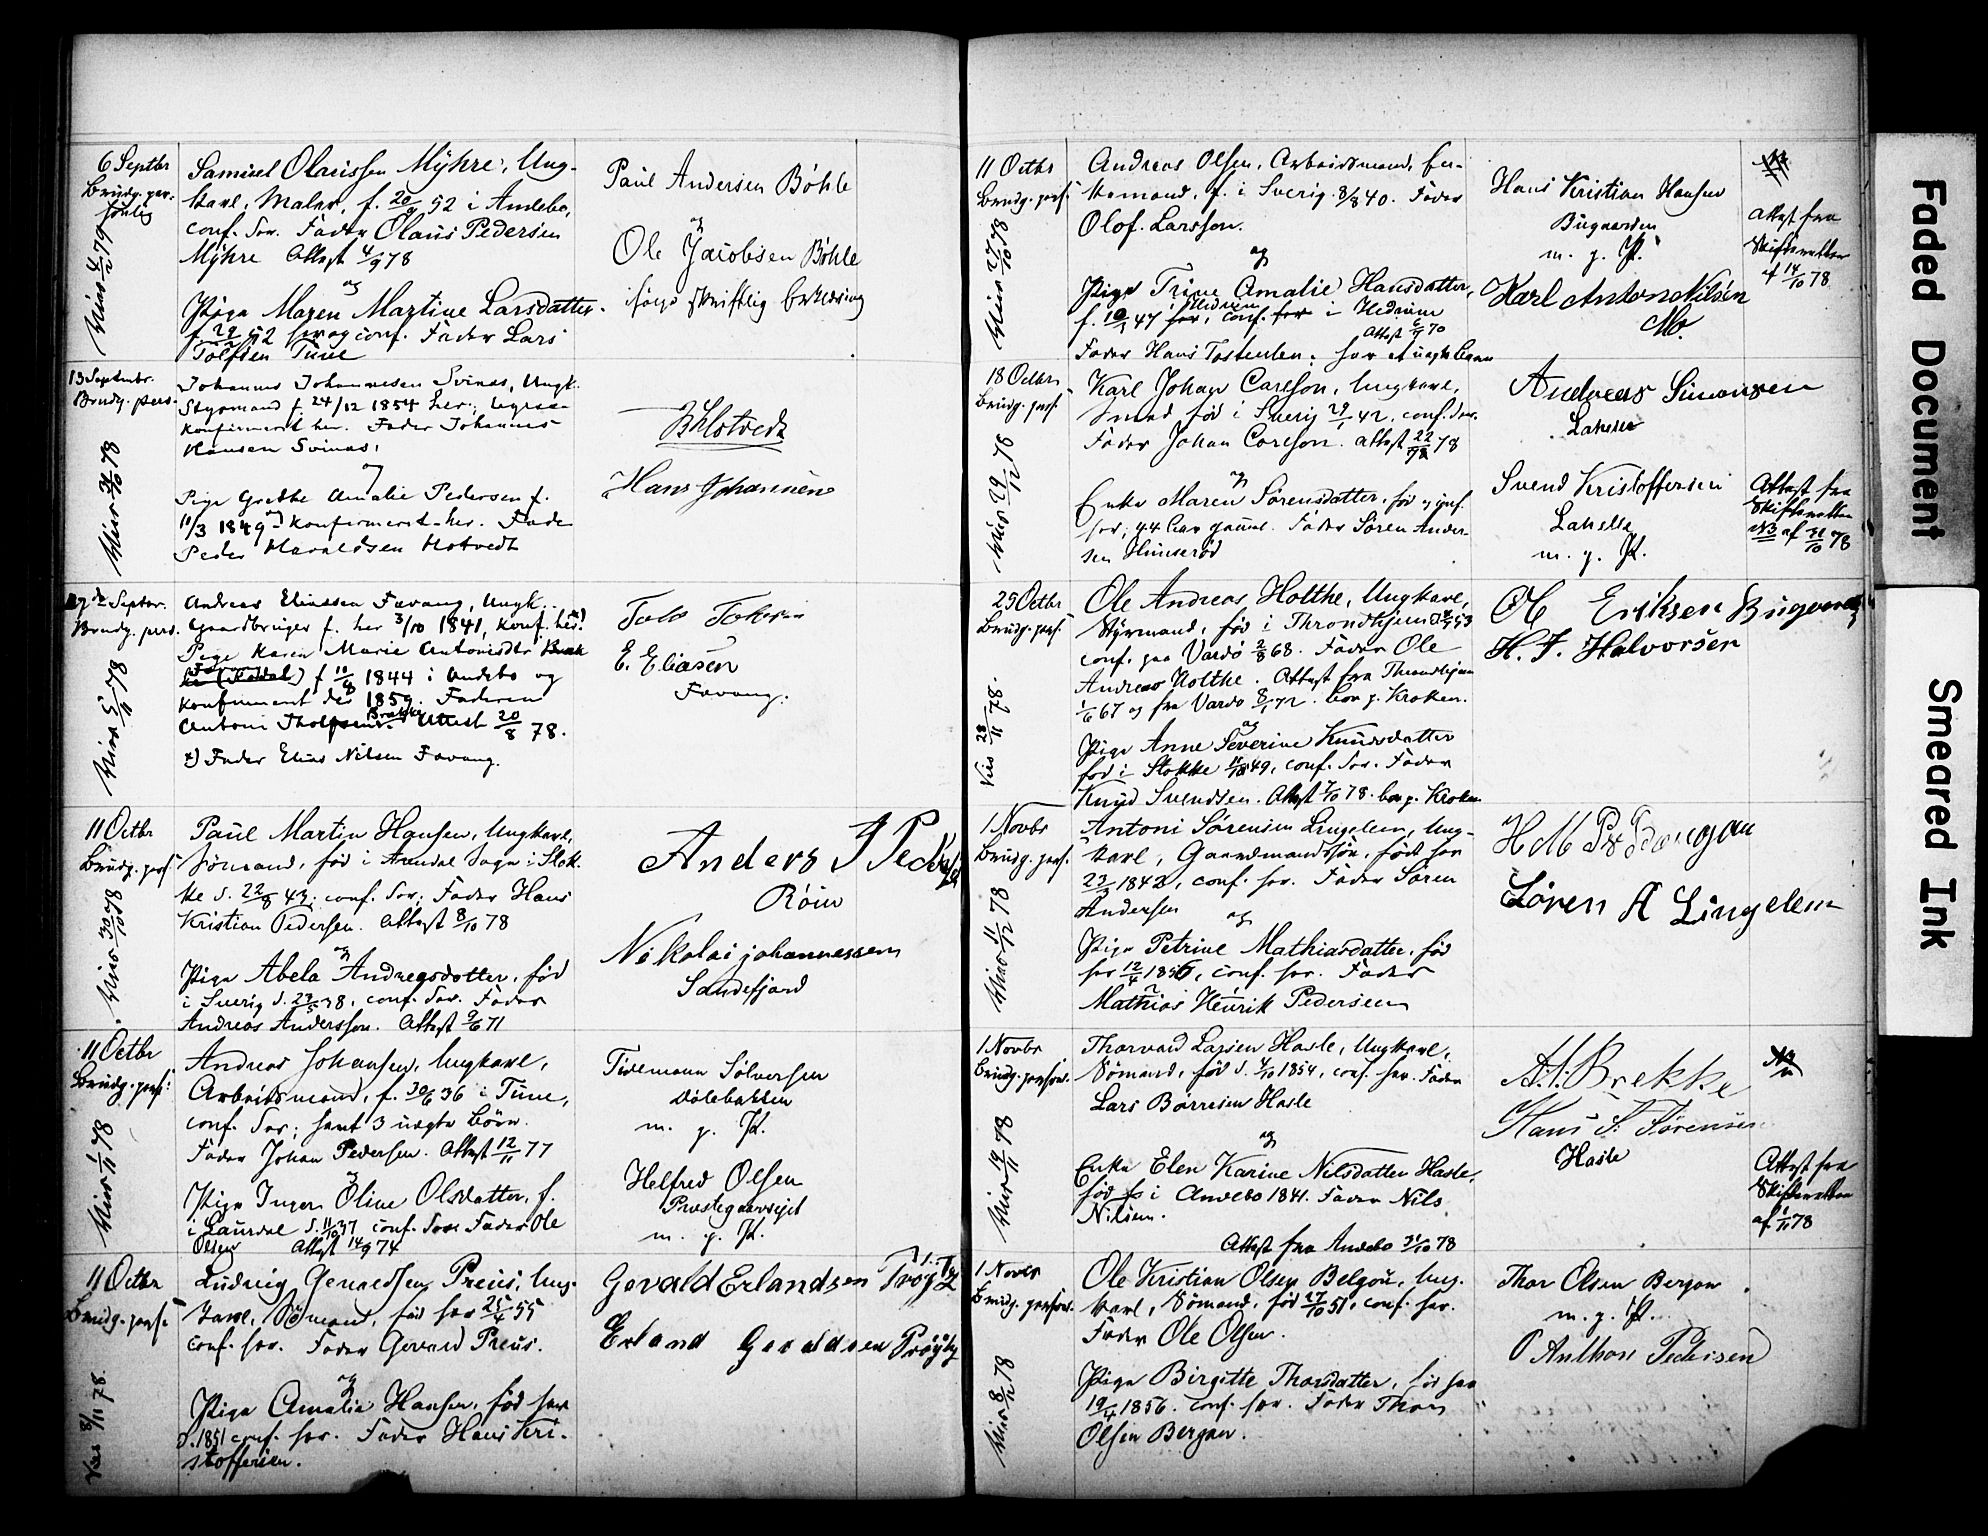 6 Septbr
Brudg. per-
sonlig
Viet 4/2 79
Samuel Olaussen Myhre, Ung-
karl, Maler, f. 20/9 52 i Andebo,
conf. do. Fader Olaus Pedersen
Myhre Attest 4/9 78
og
Pige Maren Martine Larsdatter
f. 29/ 52 her og conf. Fader Lars
Tolfsen Tune
Paul Andersen Bøhle
og
Ole Jacobsen Bøhle
ifølge skriftlig Erklæring
13 Septembr.
Brudg. pers.
Viet /10 78
Johannes Johannesen Svinæs, Ungk.
Styrmand f. 24/12 1854 her,
Konfirmeret her. Fader Johannes
Hansen Svinæs.
og
Pige Grethe Amalie Pedersen f.
11/3 1849 og Konfirmeret her. Fader
Peder Haraldsen Hotvedt
Hans Johannesen
27de Septbr.
Brudg. pers.
Viet 5/11 78
Andreas Eliassen Favang, Ungk.
Gaardbruger f. her 3/10 1841, Konf. her. x)
Pige Karen Marie Antonisdtr
f 11/9 1844 i Andebo og
Konfirmeret der 1859. Faderen
Antoni Brække Attest 20/8 78.
x) Fader Elias Nilsen Favang.
E. Eliasen
Favang.
11 Octbr
Brudg. pers
Viet 30/10 78
Paul Martin Hansen, Ungkarl,
Sømand, fød i Arendal Sogn i Stok-
ke d. 22/8 43; conf. do; Fader Hans
Kristian Pedersen. Attest 8/10 78
og
Pige Abela Andreasdatter, fød
i Sverig d. 29/5 38, conf. do. Fader
Andreas Andersson. Attest 9/6 71
Anders Peders
Røin
Nikolai johannessen
Sandefjord
11 Octbr
Brudg. pers.
Viet 1/11 78
Andreas Johansen, Ungkarl,
Arbeidsmand, f. 30/6 36 i Tune,
conf. do; havt 3 uægte Børn.
Fader Johan Pedersen. Attest 12/11 77
og
Pige Inger Oline Olsdatter, f.
i Laurdal d. 11/10 37 conf. do. Fader Ole
Olsen Attest 14/9 74
Tidemann Sølversen
Dølebakken
m. p. P.
Helfred Olsen
Prestegaarsejet
m. p. P.
11 Octbr
Brudg. pers.
Viet 8/11 78.
Ludvig Geruldsen Preus, Ung-
karl, Sømand, fød her 25/4 55
conf. her. Fader Gerord Preus.
og
Pige Amalia Hansen, fød her
d. 1851 conf. her. Fader Hans Kri-
stoffersen.
Gerald Erlandsen
Erland Geraldsen Prøysby
11 Octbr
Brudg. pers.
Viet 27/10 78
Andreas Olsen, Arbeidsmand, En-
kemand, f. i Sverig. 8/8 40. Fader
Olof. Larsson.
og
Pige Trine Amalie Hansdatter,
f. 10/1 47 her, conf. her i Hedrum
Hedrum
Attest 6/9 70
Fader Hans Tostensen. har et uægte Barn
Hans Kristian Hansen
Bugaarden
m. p. P.
Karl Anton Nilsen
Mo.
Attest fra
Skifteretten
af 14/10 78
18 Octbr
Brudg. pers.
Viet 29/12 78
Karl Johan Carlson, Ungkarl,
Smed fød i Sverig 29/1 42, conf. der.
Fader Johan Carlson. Attest 22/ 78
og
Enke Maren Sørensdatter, fød og conf.
her, 44 Aar gammel. Fader Søren Ander-
sen Himserød
Andreas Simonsen
Lakselle
Svend Kristoffersen
Lakselle
m. p. P.
Attest fra
Skifteretten
N3 af 31/10 78
25 Octbr
Brudg. pers.
Viet 28/11 78.
Ole Andreas Holthe, Ungkarl,
Styrmand, fød i Throndhjem 53
conf. paa Vardö 2/8 68. Fader Ole
Andreas Holthe. Attest fra Throndhjem
1/6 67 og fra Vardö 8/1 72. bor p. Kroken.
og
Pige Anne Severine Knudsdatter
fød i Stokke 11/10 49, conf. do. Fader
Knud Svendsen. Attest 7/10 78. bor p. Kroken
Ole Eriksen Bugaarden
H. F. Halvorsen
1 Novbr
Brudg. pers.
Viet 11/12 78
Antoni Sørensen Lingelem, Ung-
karl, Gaardmandssøn, født her
23/3 1842, conf. her. Fader Søren
Andersen
og
Pige Petrine Mathiasdatter, fød
her 12/4 1856, conf. her. Fader
Mathias Henrik Pedersen
Søren A Lingelem
1 Novbr
Brudg. person.
Viet 19/11 78
Thorvard Larsen Hasle, Ungkarl,
Sømand, fød d. 4/10 1854, conf. her. Fader
Lars Børresen Hasle
og
Enke Elen Karine Nilsdatter Hasle,
fød i Andebo 1841. Fader Nils
Nilsen.
Attest fra Andebo 31/10 78
A. A. Brekke
Hans S. Sørensen
Hasle
Attest fra
Skifteretten
af 1/11 78
1 Novbr
Brudg. person.
Viet 8/12 78
Ole Kristian Olsen Belgau, Ung-
karl, Sømand, fød 27/10 51, conf. her.
Fader Ole Olsen.
Pige Birgitte Thorsdatter, fød her
19/4 1856. conf. her. Fader Thor
Olsen Bergan.
Thor Olsen Bergan
m. p. P.
O Anthon Pedersen
Faded Document
Smeared Ink